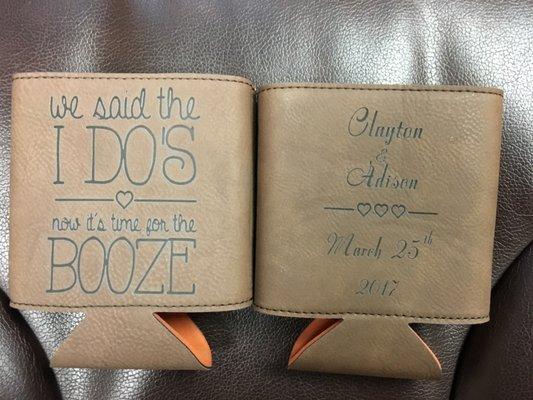 we said the
I DO'S
now it's time for the
BOOZE
Clayton
&
Adison
March 25th
2017